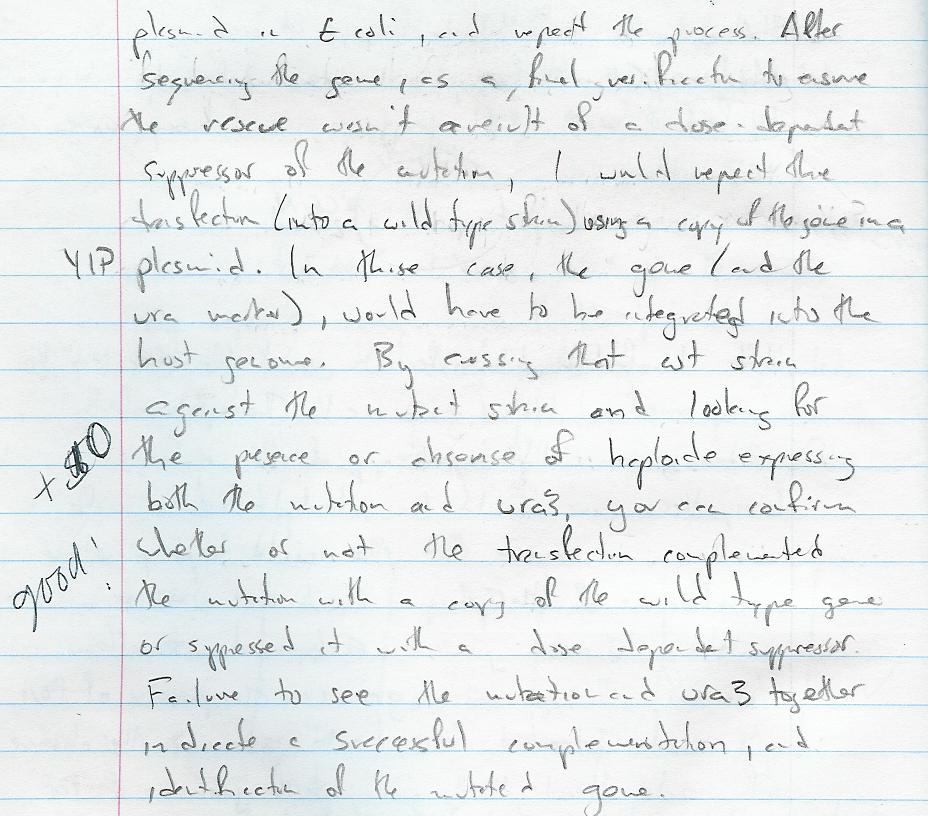 plasmid in E coli, and repeat the process. After
sequencing the gene, as a final verification to ensure
the rescue wasn't a result of a dose-dependent
suppressor of the mutation, I would repeat the
transfection (into a wild type strain) using a copy of the gene in a
YIP plasmid. In these case, the gene (and the
ura marker), would have to be integrated into the
host genome. By crossing that wt strain
against the mutant strain and looking for
the presence or absense of haploids expressing
+10
both the mutation and ura3, you can confirm
whether or not the transfection complemented
good!
the mutation with a copy of the wild type gene
or syppressed it with a dose dependent suppressor.
Failure to see the mutation and ura3 together
indicate a successful complementation, and
identification of the mutated gene.